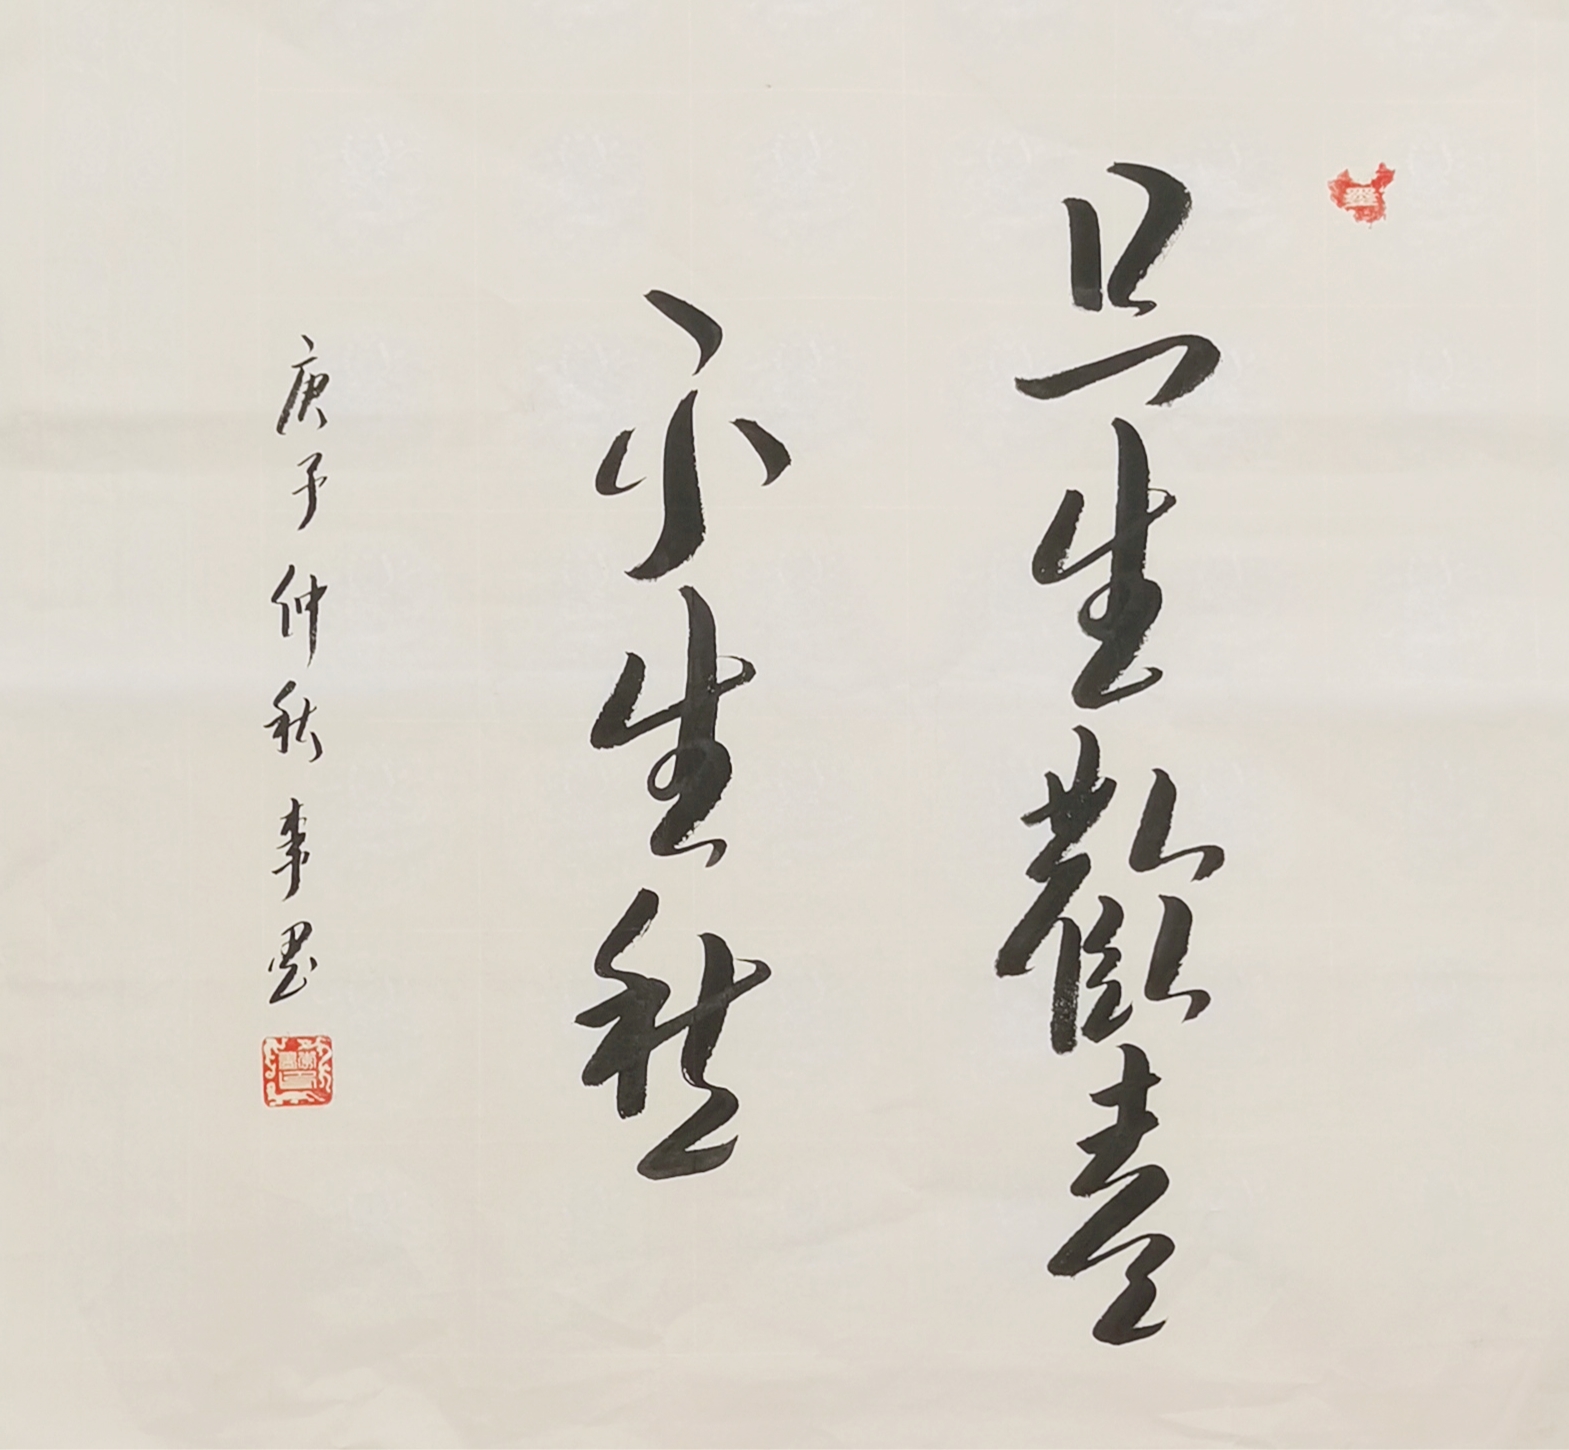 只生歡喜
不生愁
庚子仲秋 李墨